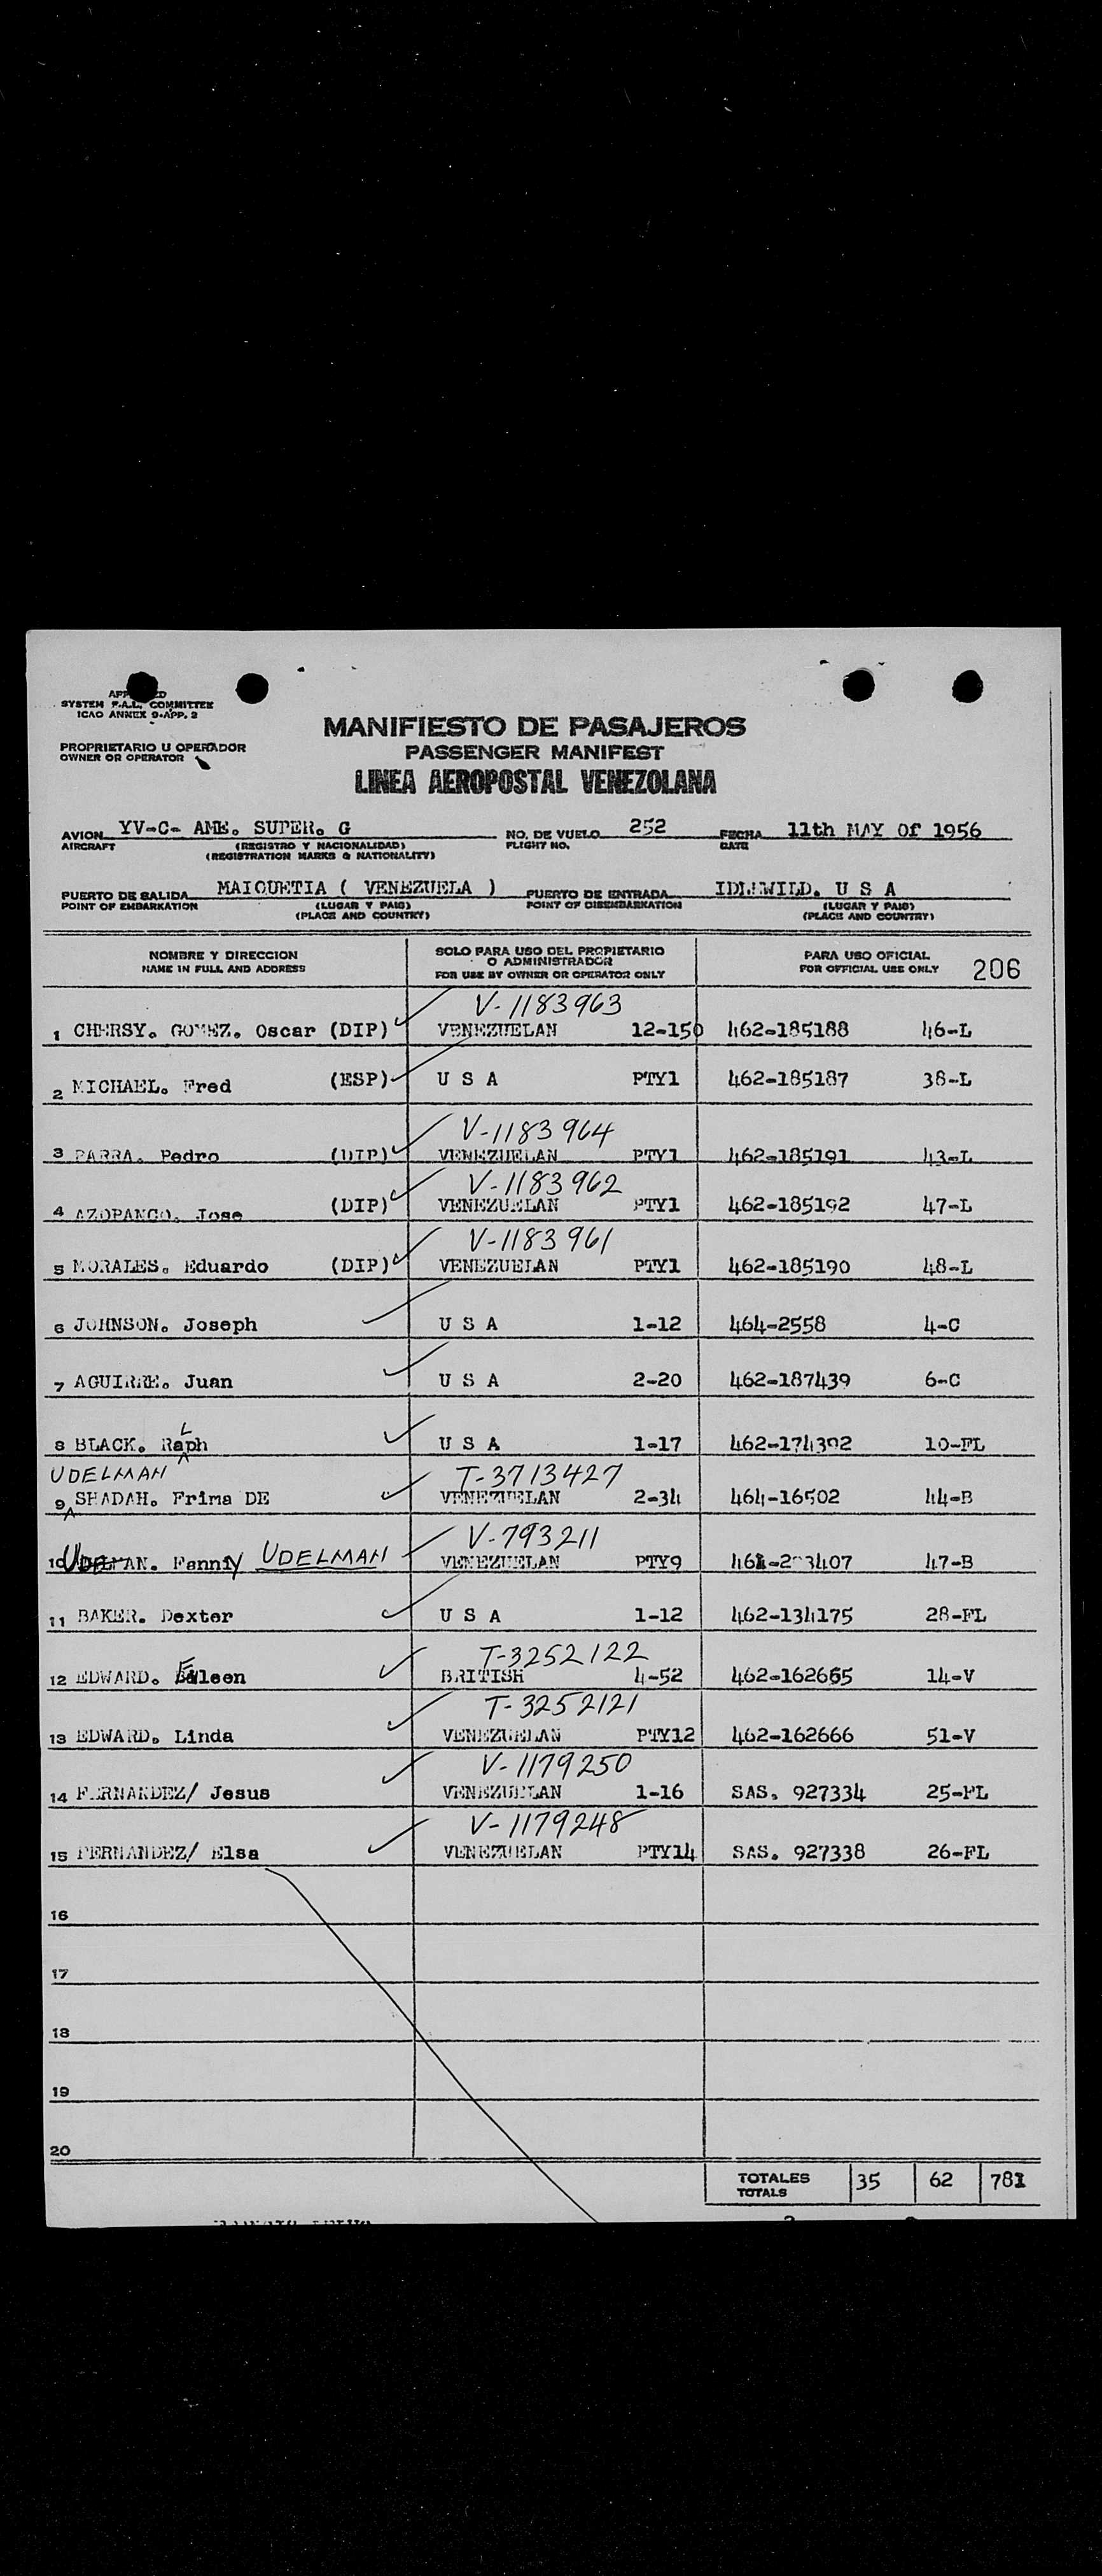 APPROVED
SYSTEM F.A.L. COMMITTEE
ICAO ANNEX 9-APP. 2
MANIFIESTO DE PASAJEROS
PROPRIETARIO U OPERADOR
OWNER OR OPERATOR
PASSENGER MANIFEST
LINEA AEROPOSTAL VENEZOLANA
AVION YV-C- AME. SUPER. G NO. DE VUELO 252 FECHA 11th MAY Of 1956
AIRCRAFT (REGISTRO Y NACIONALIDAD) FLIGHT NO. DATE
(REGISTRATION MARKS & NATIONALITY)
PUERTO DE SALIDA MAIQUETIA ( VENEZUELA ) PUERTO DE ENTRADA IDLEWILD. U S A
POINT OF EMBARKATION (LUGAR Y PAIS) POINT OF DISEMBARKATION (LUGAR Y PAIS)
(PLACE AND COUNTRY) (PLACE AND COUNTRY)
NOMBRE Y DIRECCION SOLO PARA USO DEL PROPIETARIO PARA USO OFICIAL
O ADMINISTRADOR
NAME IN FULL AND ADDRESS FOR USE BY OWNER OR OPERATOR ONLY FOR OFFICIAL USE ONLY 206
V-1183963
1 CHERSY. GOMEZ. Oscar (DIP) VENEZUELAN 12-150 462-185188 46-L
2 MICHAEL. Fred (ESP) U S A PTY1 462-185187 38-L
V-1183964
3 PARRA. Pedro (DIP) VENEZUELAN PTY1 462-185191 43-L
V-1183962
4 AZOPANCO. Jose (DIP) VENEZUELAN PTY1 462-185192 47-L
V-1183961
5 MORALES. Eduardo (DIP) VENEZUELAN PTY1 462-185190 48-L
6 JOHNSON. Joseph U S A 1-12 464-2558 4-C
7 AGUIRRE. Juan U S A 2-20 462-187439 6-C
L
8 BLACK. Raph U S A 1-17 462-174392 10-FL
UDELMAN T-3713427
9 SHADAH. Frima DE VENEZUELAN 2-34 464-16502 44-B
V-793211
10 Fanny UDELMAN VENEZUELAN PTY9 47-B
11 BAKER. Dexter U S A 1-12 462-134175 28-FL
T-3252122
12 EDWARD. Eileen BRITISH 4-52 462-162665 14-V
T-3252121
13 EDWARD. Linda VENEZUELAN PTY12 462-162666 51-V
V-1179250
14 FERNANDEZ/ Jesus VENEZUELAN 1-16 SAS. 927334 25-FL
V-1179248
15 FERNANDEZ/ Elsa VENEZUELAN PTY14 SAS. 927338 26-FL
16
17
18
19
20
TOTALES 35 62 781
TOTALS